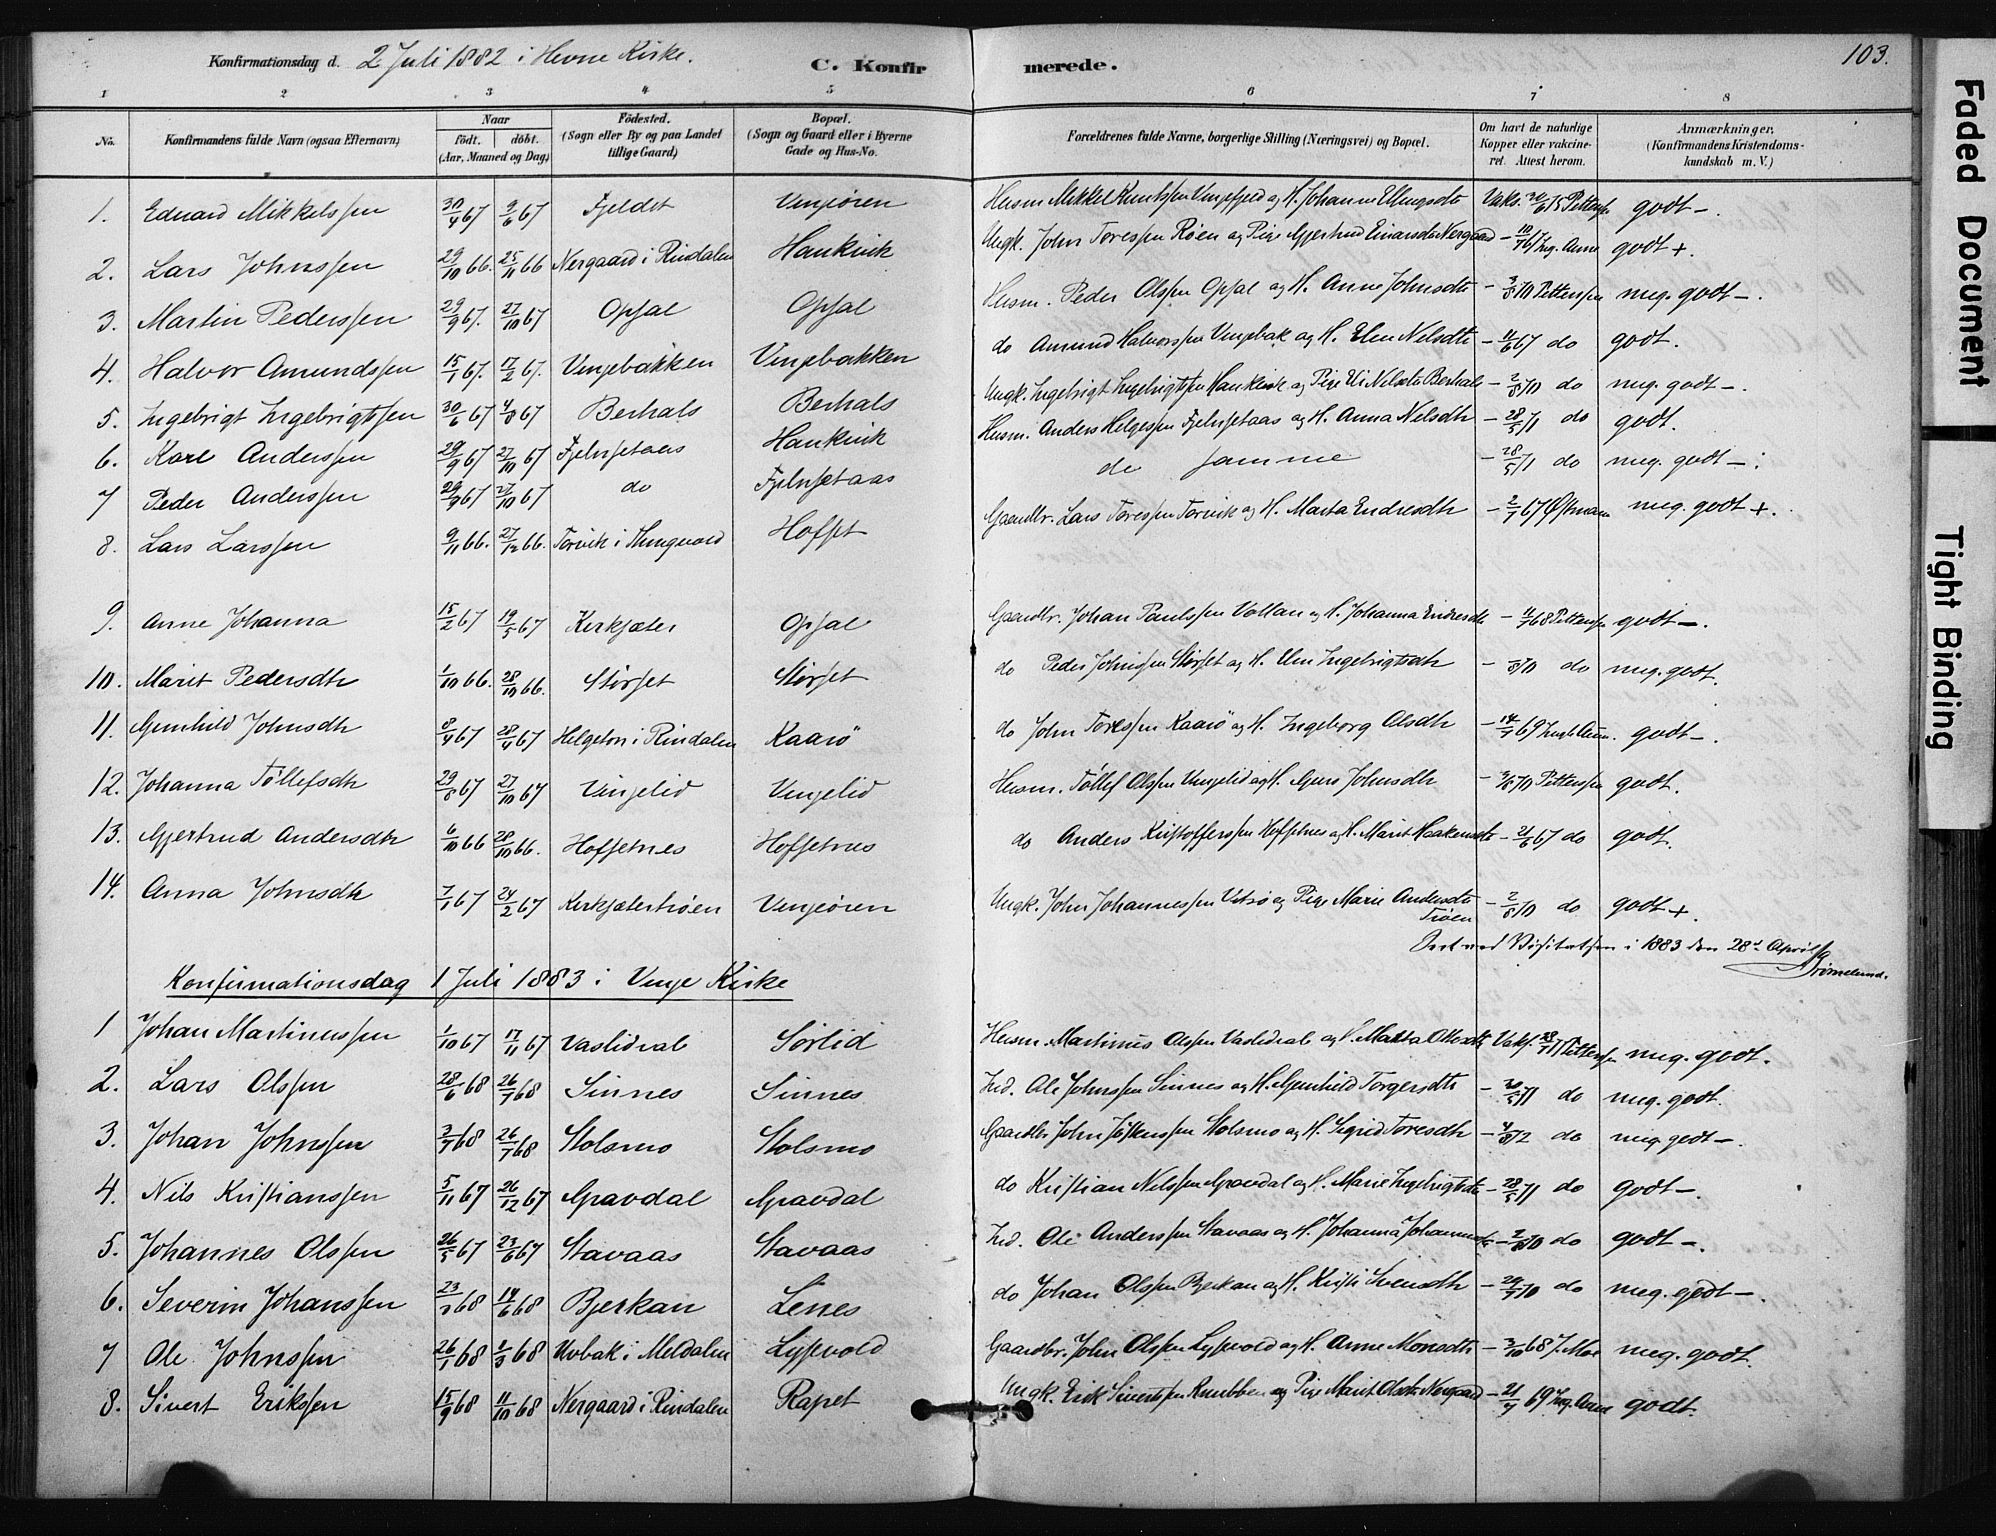 Konfirmationsdag d. 2 Juli 1882 i Hevne Kirke. C. Konfirmerede. 103.
1 2 3 4 5 6 7 8
No. Konfirmandens fulde Navn (ogsaa Efternavn) Naar födt. döbt. (Aar, Maaned og Dag) Födested. (Sogn eller By og paa Landet tillige Gaard) Bopæl. (Sogn og Gaard eller i Byerne Gade og Hus-No. Forældrenes fulde Navne, borgerlige Stilling (Næringsvei) og Bopæl. Om havt de naturlige Kopper eller vakcineret. Attest herom. Anmærkninger. (Konfirmandens Kristendomskundskab m. V.)
1. Eduard Mikkelssen 30/4 67 9/6 67 Fjeldet Vinjeören Husm. Mikkel Knutssen Vinjefjeld og H. Johanne Ellingsdtr Vaks. Pettersen godt -.
2. Lars Johnssen 29/10 66. 25/11 66 Nergaard i Rindalen Haukvik Ungk. John Toressen Røen og Pige Gjertrud Einarsdtr Nergaard - Ing. Aune godt +.
3. Martin Pederssen 29/9 67. 27/10 67 Opsal Opsal Husm. Peder Olssen Opsal og H. Anne Johnsdtr - Pettersen meg. godt -.
4. Halvor Amundssen 15/1 67. 17/2 67. Vinjebakken Vinjebakken do Amund Halvorssen Vinjebak og H. Elen Nelsdtr - 11/6 67 do godt.
5. Ingebrigt Ingebrigtssen 30/6 67 4/8 67 Berhals Berhals Ungk. Ingebrigt Ingebrigtssen Haukvik og Pige Nelsdtr Berhals - 2/8 70 do meg. godt -.
6. Karl Anderssen 29/9 67 27/10 67 Fjelnsetaas Haukvik Husm. Anders Helgessen Fjelnsetaas og H. Anna Nelsdtr - 28/5 71 do godt.
7 Peder Anderssen 29/9 67 27/10 67 do Fjelnsetaas de samme - 28/5 71 do meg. godt -.
8. Lars Larssen 9/11 66. 27/12 66. Torvik i Thingvold Hofset Gaardbr. Lars Toressen Torvik og H. Marta Endresdtr - 2/7 67 Østman meg. godt +.
9. Anne Johanna 15/2 67 19/5 67 Kirksæter Opsal Gaardbr. Johan Paulssen Vollan og H. Johanna Endresdtr - 68 Pettersen godt -.
10. Marit Pedersdtr 1/10 66. 28/10 66. Störset Störset do Peder Johnssen Störset og H. Elen Ingebrigtsdtr - do meg. godt.
11. Gjunhild Johnsdtr 8/4 67 28/4 67 Helgeton i Rindalen Kaarö do John Toressen Kaarö og H. Ingeborg Olsdtr - 14/7 69 Ingb. Aune. godt -.
12. Johanna Töllefsdtr 29/8 67 27/10 67 Vinjelid Vinjelid Husm. Töllef Olssen Vinjelid og H. Guru Johnsdtr - Pettersen godt.
13. Gjertrud Andersdtr 6/10 66 28/10 66. Hofsetnes Hofsetnes do Anders Kristofferssen Hofsetnes og H. Marit Haakensdtr - 21/6 67 do godt.
14. Anna Johnsdtr 7/1 67 24/2 67 Kirksetertrøen Vinjeören Ungk. John Johannessen Utrö og Pige Marie Andersdtr Trøen - 2/8 70 do godt +.
ved Visitatsen i 1883 den 28de April Strömelund.
Konfirmationsdag 1 Juli 1883 i Vinje Kirke
1 Johan Martinussen 1/10 67 17/11 67 Vaslidval Sörlid Husm. Martinus Olssen Vaslidval og H. Marta Olsdtr Vaks. 28/5 71 Pettersen meg. godt.
2. Lars Olssen 28/6 68 26/7 68 Sinnes Sinnes Ind. Ole Johnssen Sinnes og H. Gjunhild Torgersdtr - do meg. godt.
3. Johan Johnssen 3/7 68 26/7 68 Stolsmo Stolsmo Gaardbr John Jöstenssen Stolsmo og H. Sigrid Toresdtr - 4/8 72 do meg. godt -.
4. Nils Kristianssen 5/11 67 26/12 67 Gravdal Gravdal do Kristian Nelssen Gravdal og H. Marie Ingebrigtsdtr - 28/5 71 do godt -.
5. Johannes Olssen 26/5 67 23/6 67 Stavaas Stavaas Ind. Ole Anderssen Stavaas og H. Johanna Johannesdtr - 2/8 70 do godt -.
6. Severin Johanssen 23/3 68 14/6 68 Bjerkan Lenes do Johan Olssen Bjerkan og H. Kirsti Svensdtr - 24/7 70 do meg. godt -.
7 Ole Johnssen 26/1 68 8/3 68 Uvbak i Meldalen Lysvold Gaardbr. John Olssen Lysvold og H. Anne Monsdtr - 3/10 68 J. Moe meg. godt.
8. Sivert Erikssen 15/9 68 11/10 68 Nergaard i Rindalen Rapet Ungk. Erik Sivertssen Knubben og Pige Marit Olsdtr Nergaard - 21/7 69 Ing. Aune godt.
Faded Document
Tight Binding